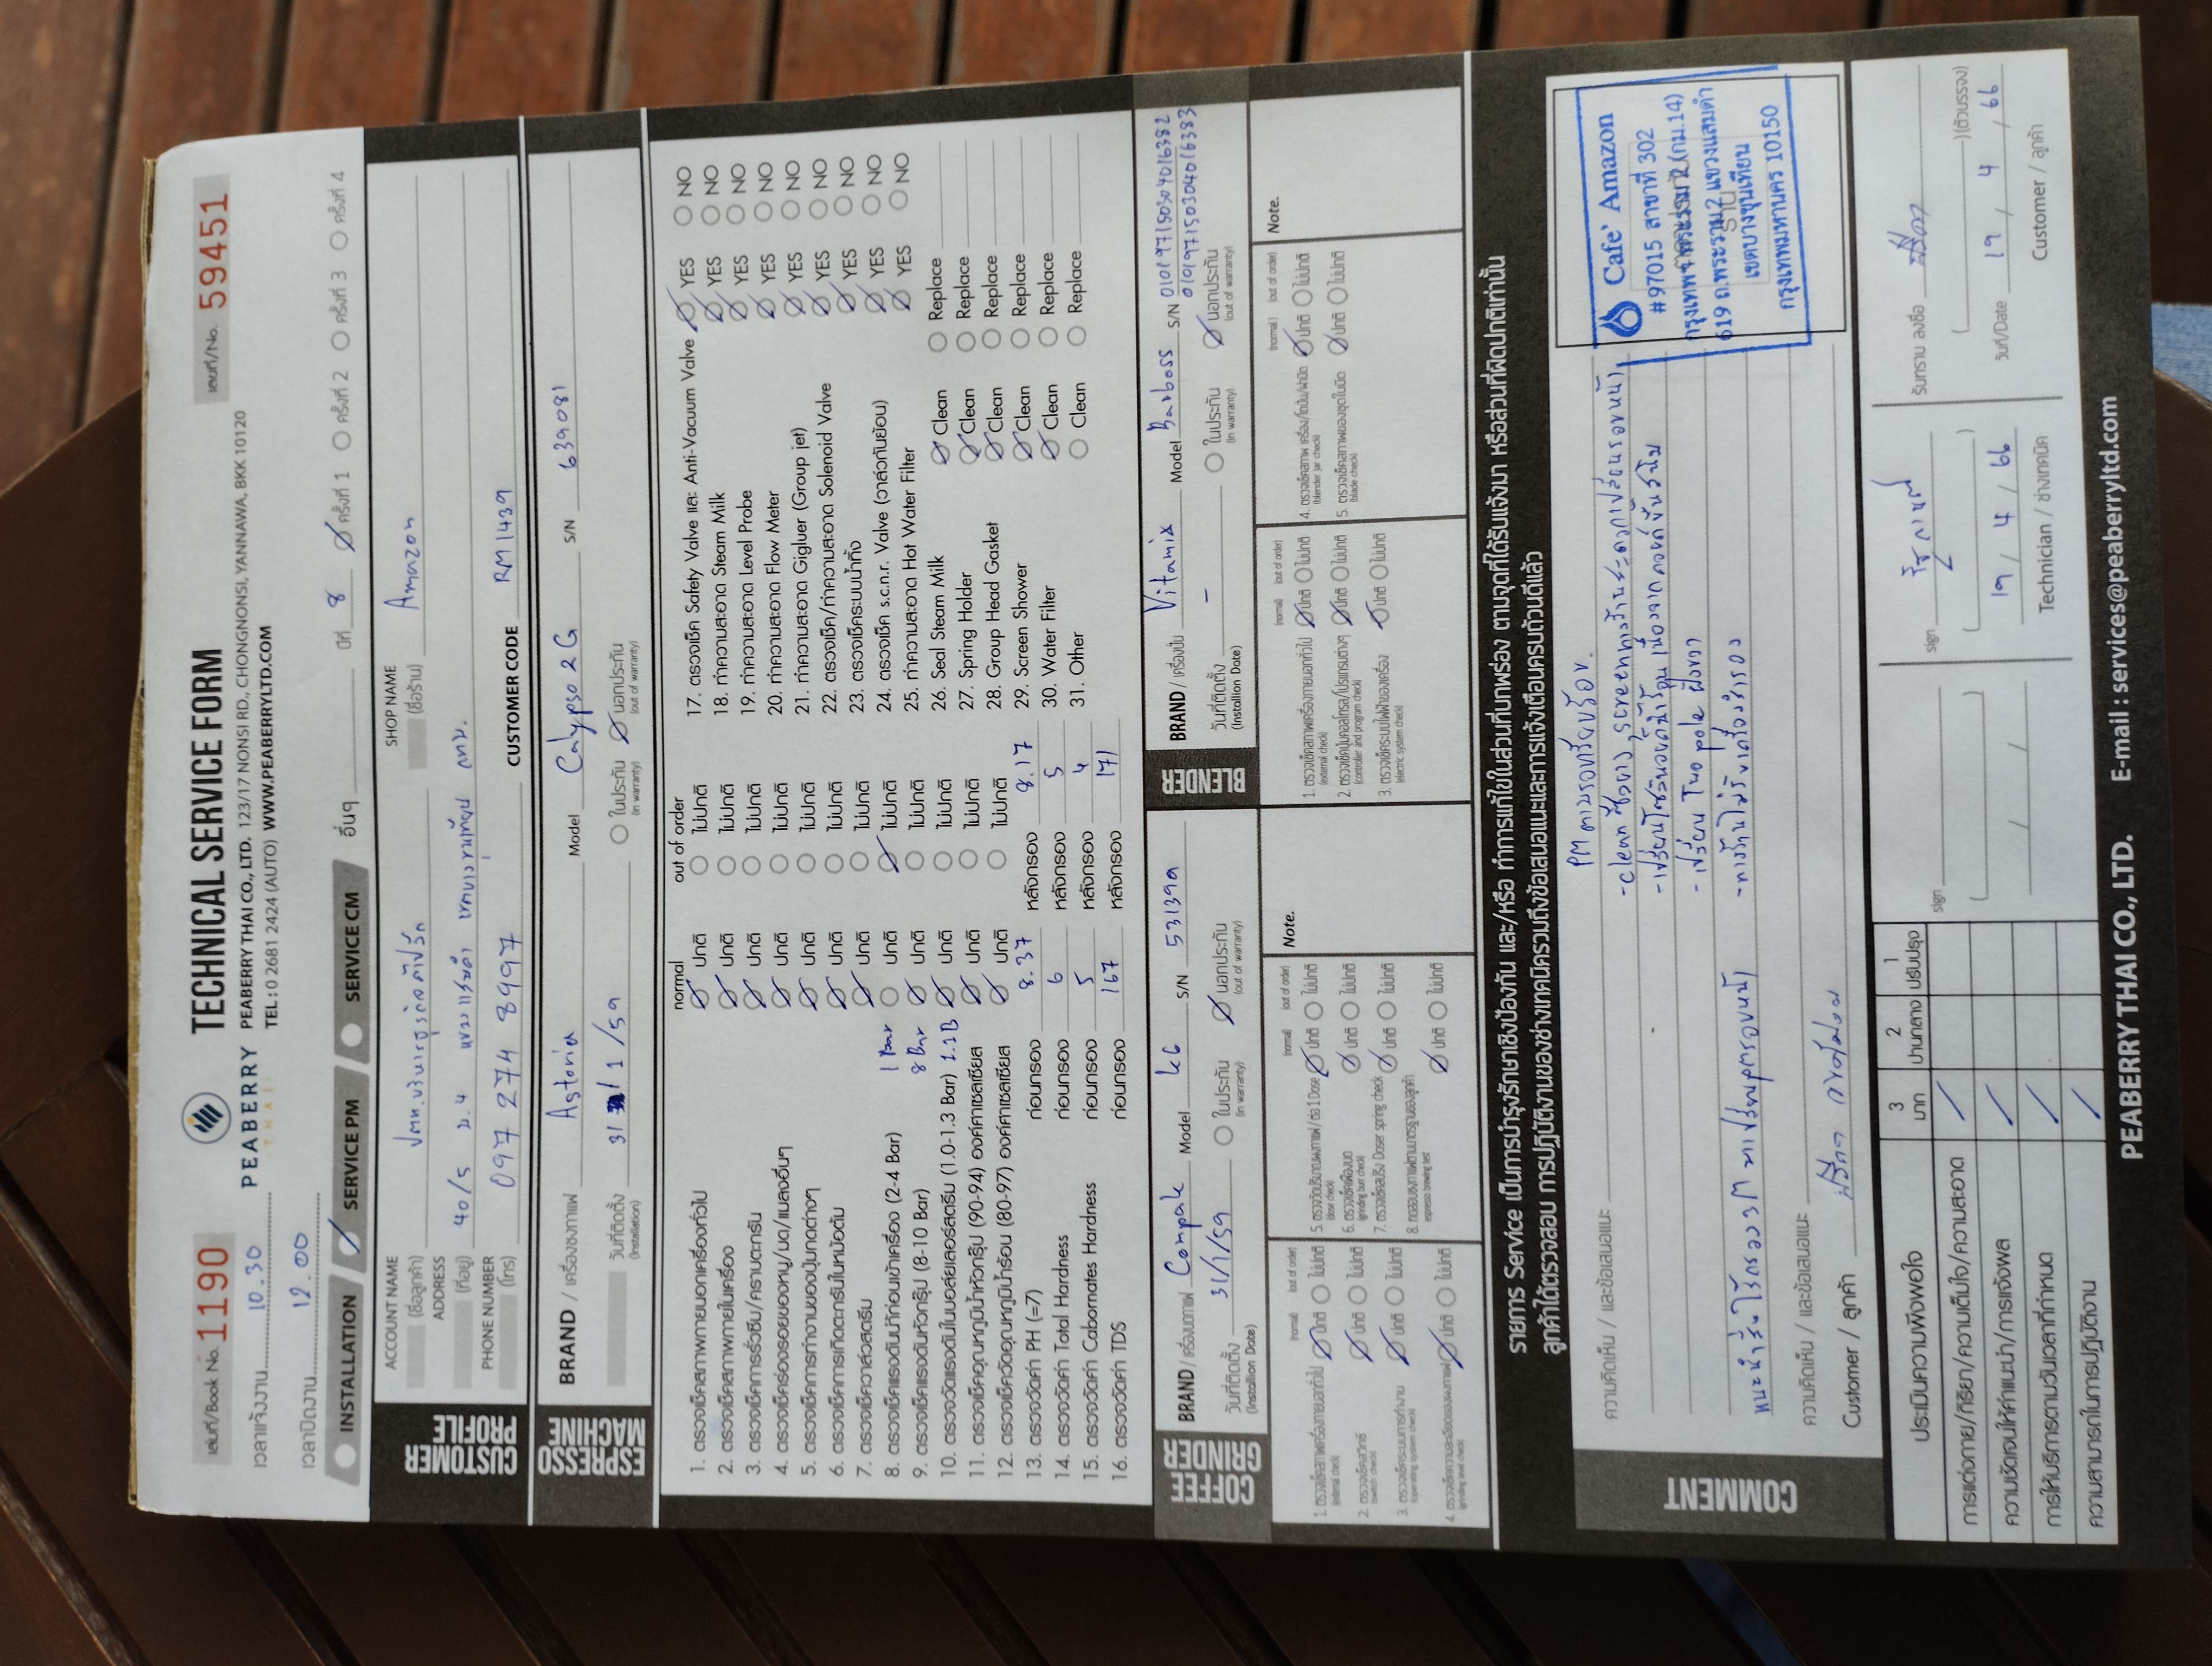 เล่มที่/Book No. 1190
PEABERRY
THAI
TECHNICAL SERVICE FORM
PEABERRY THAI CO., LTD. 123/17 NONSI RD., CHONGNONSI, YANNAWA, BKK 10120
TEL : 0 2681 2424 (AUTO) WWW.PEABERRYLTD.COM
เลขที่/No. 59451
เวลาแจ้งงาน 10.30
เวลาปิดงาน 12.00
INSTALLATION SERVICE PM SERVICE CM อื่นๆ ปีที่ 8 ครั้งที่ 1 ครั้งที่ 2 ครั้งที่ 3 ครั้งที่ 4
CUSTOMER PROFILE
ACCOUNT NAME (ชื่อลูกค้า) ปตท.บริหารธุรกิจค้าปลีก SHOP NAME (ชื่อร้าน) Amazon
ADDRESS (ที่อยู่) 40/5 ม.4 แขวงแสมดำ เขตบางขุนเทียน กทม.
PHONE NUMBER (โทร) 097 274 8997 CUSTOMER CODE RM1439
ESPRESSO MACHINE
BRAND / เครื่องชงกาแฟ Astoria Model Calypso 2G S/N 639081
วันที่ติดตั้ง (Installation) 31/1/59 ในประกัน (in warranty) นอกประกัน (out of warranty)
normal out of order
1. ตรวจเช็คสภาพภายนอกเครื่องทั่วไป ปกติ ไม่ปกติ
2. ตรวจเช็คสภาพภายในเครื่อง ปกติ ไม่ปกติ
3. ตรวจเช็คการรั่วซึม/คราบตะกรัน ปกติ ไม่ปกติ
4. ตรวจเช็คร่องรอยของหนู/มด/แมลงอื่นๆ ปกติ ไม่ปกติ
5. ตรวจเช็คการทำงานของปุ่มกดต่างๆ ปกติ ไม่ปกติ
6. ตรวจเช็คการเกิดตะกรันในหม้อต้ม ปกติ ไม่ปกติ
7. ตรวจเช็ควาล์วสตรีม ปกติ ไม่ปกติ
8. ตรวจเช็คแรงดันน้ำก่อนเข้าเครื่อง (2-4 Bar) 1 Bar ปกติ ไม่ปกติ
9. ตรวจเช็คแรงดันหัวกรุ๊ป (8-10 Bar) 8 Bar ปกติ ไม่ปกติ
10. ตรวจวัดแรงดันในบอล์ยเลอร์สตรีม (1.0-1.3 Bar) 1.1 B ปกติ ไม่ปกติ
11. ตรวจเช็คอุณหภูมิน้ำหัวกรุ๊ป (90-94) องค์ศาเซลเซียส ปกติ ไม่ปกติ
12. ตรวจเช็ควัดอุณหภูมิน้ำร้อน (80-97) องค์ศาเซลเซียส ปกติ ไม่ปกติ
13. ตรวจวัดค่า PH (=7) ก่อนกรอง 8.37 หลังกรอง 8.17
14. ตรวจวัดค่า Total Hardness ก่อนกรอง 6 หลังกรอง 5
15. ตรวจวัดค่า Cabornates Hardness ก่อนกรอง 5 หลังกรอง 4
16. ตรวจวัดค่า TDS ก่อนกรอง 167 หลังกรอง 171
17. ตรวจเช็ค Safety Valve และ Anti-Vacuum Valve YES NO
18. ทำความสะอาด Steam Milk YES NO
19. ทำความสะอาด Level Probe YES NO
20. ทำความสะอาด Flow Meter YES NO
21. ทำความสะอาด Gigluer (Group jet) YES NO
22. ตรวจเช็ค/ทำความสะอาด Solenoid Valve YES NO
23. ตรวจเช็คระบบน้ำทิ้ง YES NO
24. ตรวจเช็ค s.c.n.r. Valve (วาล์วกันย้อน) YES NO
25. ทำความสะอาด Hot Water Filter YES NO
26. Seal Steam Milk Clean Replace
27. Spring Holder Clean Replace
28. Group Head Gasket Clean Replace
29. Screen Shower Clean Replace
30. Water Filter Clean Replace
31. Other Clean Replace
COFFEE GRINDER
BRAND / เครื่องบดกาแฟ Compak Model k6 S/N 531399
วันที่ติดตั้ง (Installion Date) 31/1/59 ในประกัน (in warranty) นอกประกัน (out of warranty)
(normal) (out of order)
1. ตรวจเช็คสภาพเครื่องภายนอกทั่วไป (external check) ปกติ ไม่ปกติ
2. ตรวจเช็คสวิทช์ (switch check) ปกติ ไม่ปกติ
3. ตรวจเช็คระบบการทำงาน (operating system check) ปกติ ไม่ปกติ
4. ตรวจเช็คความละเอียดของผงกาแฟ (grinding level check) ปกติ ไม่ปกติ
(normal) (out of order)
5. ตรวจวัดปริมาณผงกาแฟ / ต่อ 1 Dose (dose check) ปกติ ไม่ปกติ
6. ตรวจเช็คเฟืองบด (grinding burr check) ปกติ ไม่ปกติ
7. ตรวจเช็คสปริง Doser spring check ปกติ ไม่ปกติ
8. ทดสอบชงกาแฟตามมาตรฐานของลูกค้า espresso brewing test ปกติ ไม่ปกติ
Note.
BLENDER
BRAND / เครื่องปั่น Vitamix Model Barboss S/N 010197150304016382
010197150304016383
วันที่ติดตั้ง (Installion Date) - ในประกัน (in warranty) นอกประกัน (out of warranty)
(normal) (out of order)
1. ตรวจเช็คสภาพเครื่องภายนอกทั่วไป (external check) ปกติ ไม่ปกติ
2. ตรวจเช็คปุ่มคอลโทรล/โปรแกรมต่างๆ (controller and program check) ปกติ ไม่ปกติ
3. ตรวจเช็คระบบไฟฟ้าของเครื่อง (electric system check) ปกติ ไม่ปกติ
(normal) (out of order)
4. ตรวจเช็คสภาพ เครื่อง/โถปั่น/ฝาปิด (blender jar check) ปกติ ไม่ปกติ
5. ตรวจเช็คสภาพของชุดใบมีด (blade check) ปกติ ไม่ปกติ
Note.
รายการ Service เป็นการบำรุงรักษาเชิงป้องกัน และ/หรือ ทำการแก้ไขในส่วนที่บกพร่อง ตามจุดที่ได้รับแจ้งมา หรือส่วนที่ผิดปกติเท่านั้น
ลูกค้าได้ตรวจสอบ การปฏิบัติงานของช่างเทคนิครวมถึงข้อเสนอแนะและการแจ้งเตือนครบถ้วนดีแล้ว
COMMENT
ความคิดเห็น / และข้อเสนอแนะ PM ตามรอบเรียบร้อย.
- clean ซีลยาง, screen
- เปลี่ยน Two pole ฝั่งขวา
ความคิดเห็น / และข้อเสนอแนะ
Customer / ลูกค้า
Cafe' Amazon
#97015 สาขาที่ 302
619 ถ.พระราม2 แขวงแสมดำ
เขตบางขุนเทียน
กรุงเทพมหานคร 10150
ประเมินความพึงพอใจ 3 มาก 2 ปานกลาง 1 ปรับปรุง
การแต่งกาย/กิริยา/ความเต็มใจ/ความสะอาด /
ความชัดเจนให้คำแนะนำ/การแจ้งผล /
การให้บริการตามวันเวลาที่กำหนด /
ความสามารถในการปฏิบัติงาน /
sign
( )
/ /
sign
( )
19 / 4 / 66
Technician / ช่างเทคนิค
รับทราบ ลงชื่อ
( )(ตัวบรรจง)
วันที่/Date 19 / 4 / 66
Customer / ลูกค้า
PEABERRY THAI CO., LTD. E-mail : services@peaberryltd.com